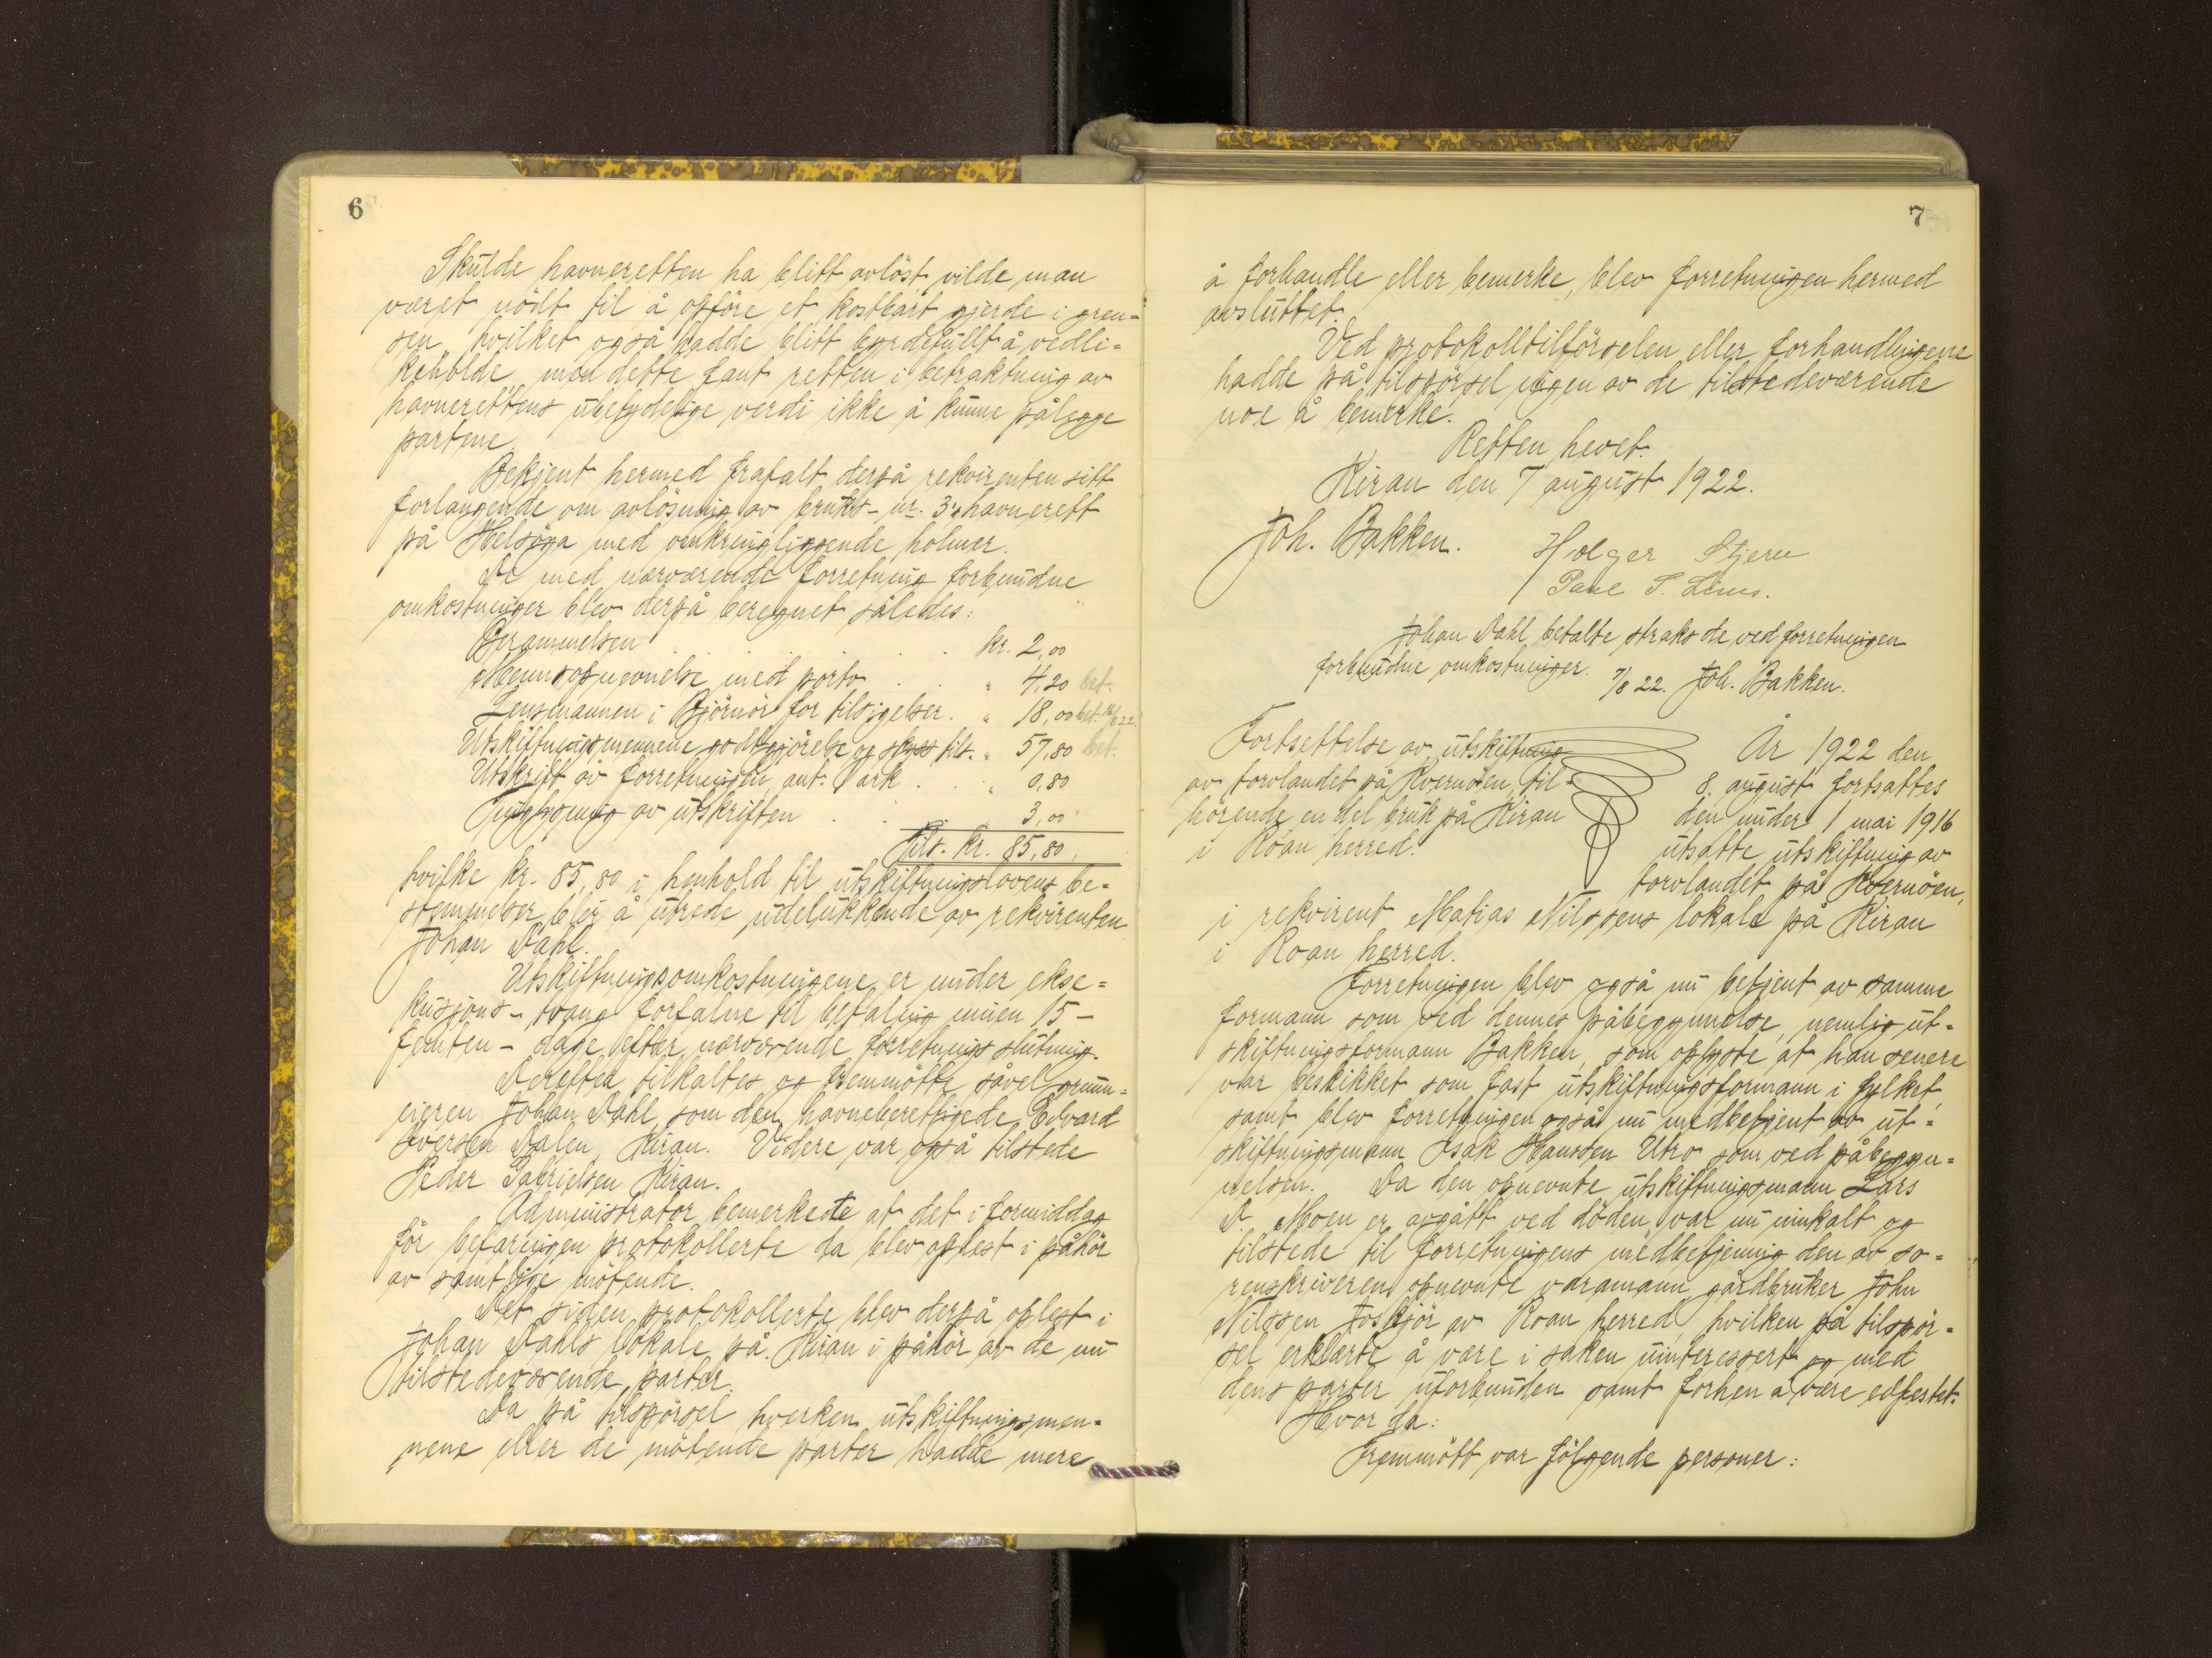 6
Skulde havneretten ha blitt avlöst, vilde man
været nödt til å opföre et kostbart gjerde i gren-
sen, hvilket også hadde blitt byrdefullt å vedli-
keholde, men dette fant retten i betraktning av
havnerettens ubetydelige verdi ikke å kunne pålegge
partene.
Bekjent hermed frafalt derpå rekvirenten sitt
forlangende om avlösning av bruks-nr. 3's havnerett
på Helsöya med omkringliggende holmer.
De med nærværende forretning forbundne
omkostninger blev derpå beregnet således:
Berammelsen . . . kr. 2,00
Mennsopnevnelse med porto . . " 4,20 bet.
Lensmannen i Björnör for tilsigelser. " 18,00 bet. 16/8 22.
Utskiftningsmennene godtgjörelse og skyss tils. " 57,80 bet.
Utskrift av forretningen, ant. 1 ark . . " 0,80
Tinglysning av utskriften . . . " 3,00
Tils. kr. 85,80.
hvilke kr. 85,80 i henhold til utskiftningslovens be-
stemmelser blir å utrede udelukkende av rekvirenten
Johan Dahl.
Utskiftningsomkostningene er under ekse-
kusjons-tvang forfalne til betaling innen 15 -
femten - dage efter nærværende forretnings slutning.
Derefter tilkaltes og fremmötte såvel grunn-
eieren Johan Dahl som den havneberettigede Edvard
Iversen Dalen, Kiran. Videre var også tilstede
Peder Gabrielsen Kiran.
Administrator bemerkede at det i formiddag
för befaringen protokollerte da blev oplest i påhör
av samtlige mötende.
Det siden protokollerte blev derpå oplest i
Johan Dahls lokale på Kiran i påhör av de nu
tilstedeværende parter.
Da på tilspörsel hverken utskiftningsmen-
nene eller de mötende parter hadde mere
7
å forhandle eller bemerke, blev forretningen hermed
avsluttet.
Ved protokolltilförselen eller forhandlingene
hadde på tilspörsel ingen av de tilstedeværende
noe å bemerke.
Retten hevet.
Kiran den 7 august 1922.
Joh. Bakken. Holger Stjern
Paul T. Lines.
Johan Dahl betalte straks de ved forretningen
forbundne omkostninger. 7/8 22. Joh. Bakken.
Fortsettelse av utskiftning
av torvlandet på Kvernöen, til-
hörende en del bruk på Kiran
i Roan herred.
År 1922 den
8. august fortsattes
den under 1 mai 1916
utsatte utskiftning av
torvlandet på Kvernöen,
i rekvirent Matias Nilssens lokale på Kiran
i Roan herred.
Forretningen blev også nu betjent av samme
formann som ved dennes påbegynnelse, nemlig ut-
skiftningsformann Bakken, som oplyste at han senere
var beskikket som fast utskiftningsformann i fylket,
samt blev forretningen også nu medbetjent av ut-
skiftningsmann Isak Hansen Utro som ved påbegyn-
nelsen. Da den opnevnte utskiftningsmann Lars
A. Moen er avgått ved döden, var nu innkalt og
tilstede til forretningens medbetjening den av so-
renskriveren opnevnte varamann gårdbruker John
Nilssen Foskjör av Roan herred, hvilken på tilspör-
sel erklærte å være i saken uinteressert og med
dens parter uforbunden samt forhen å være edfestet.
Hvor da:
Fremmött var fölgende personer: